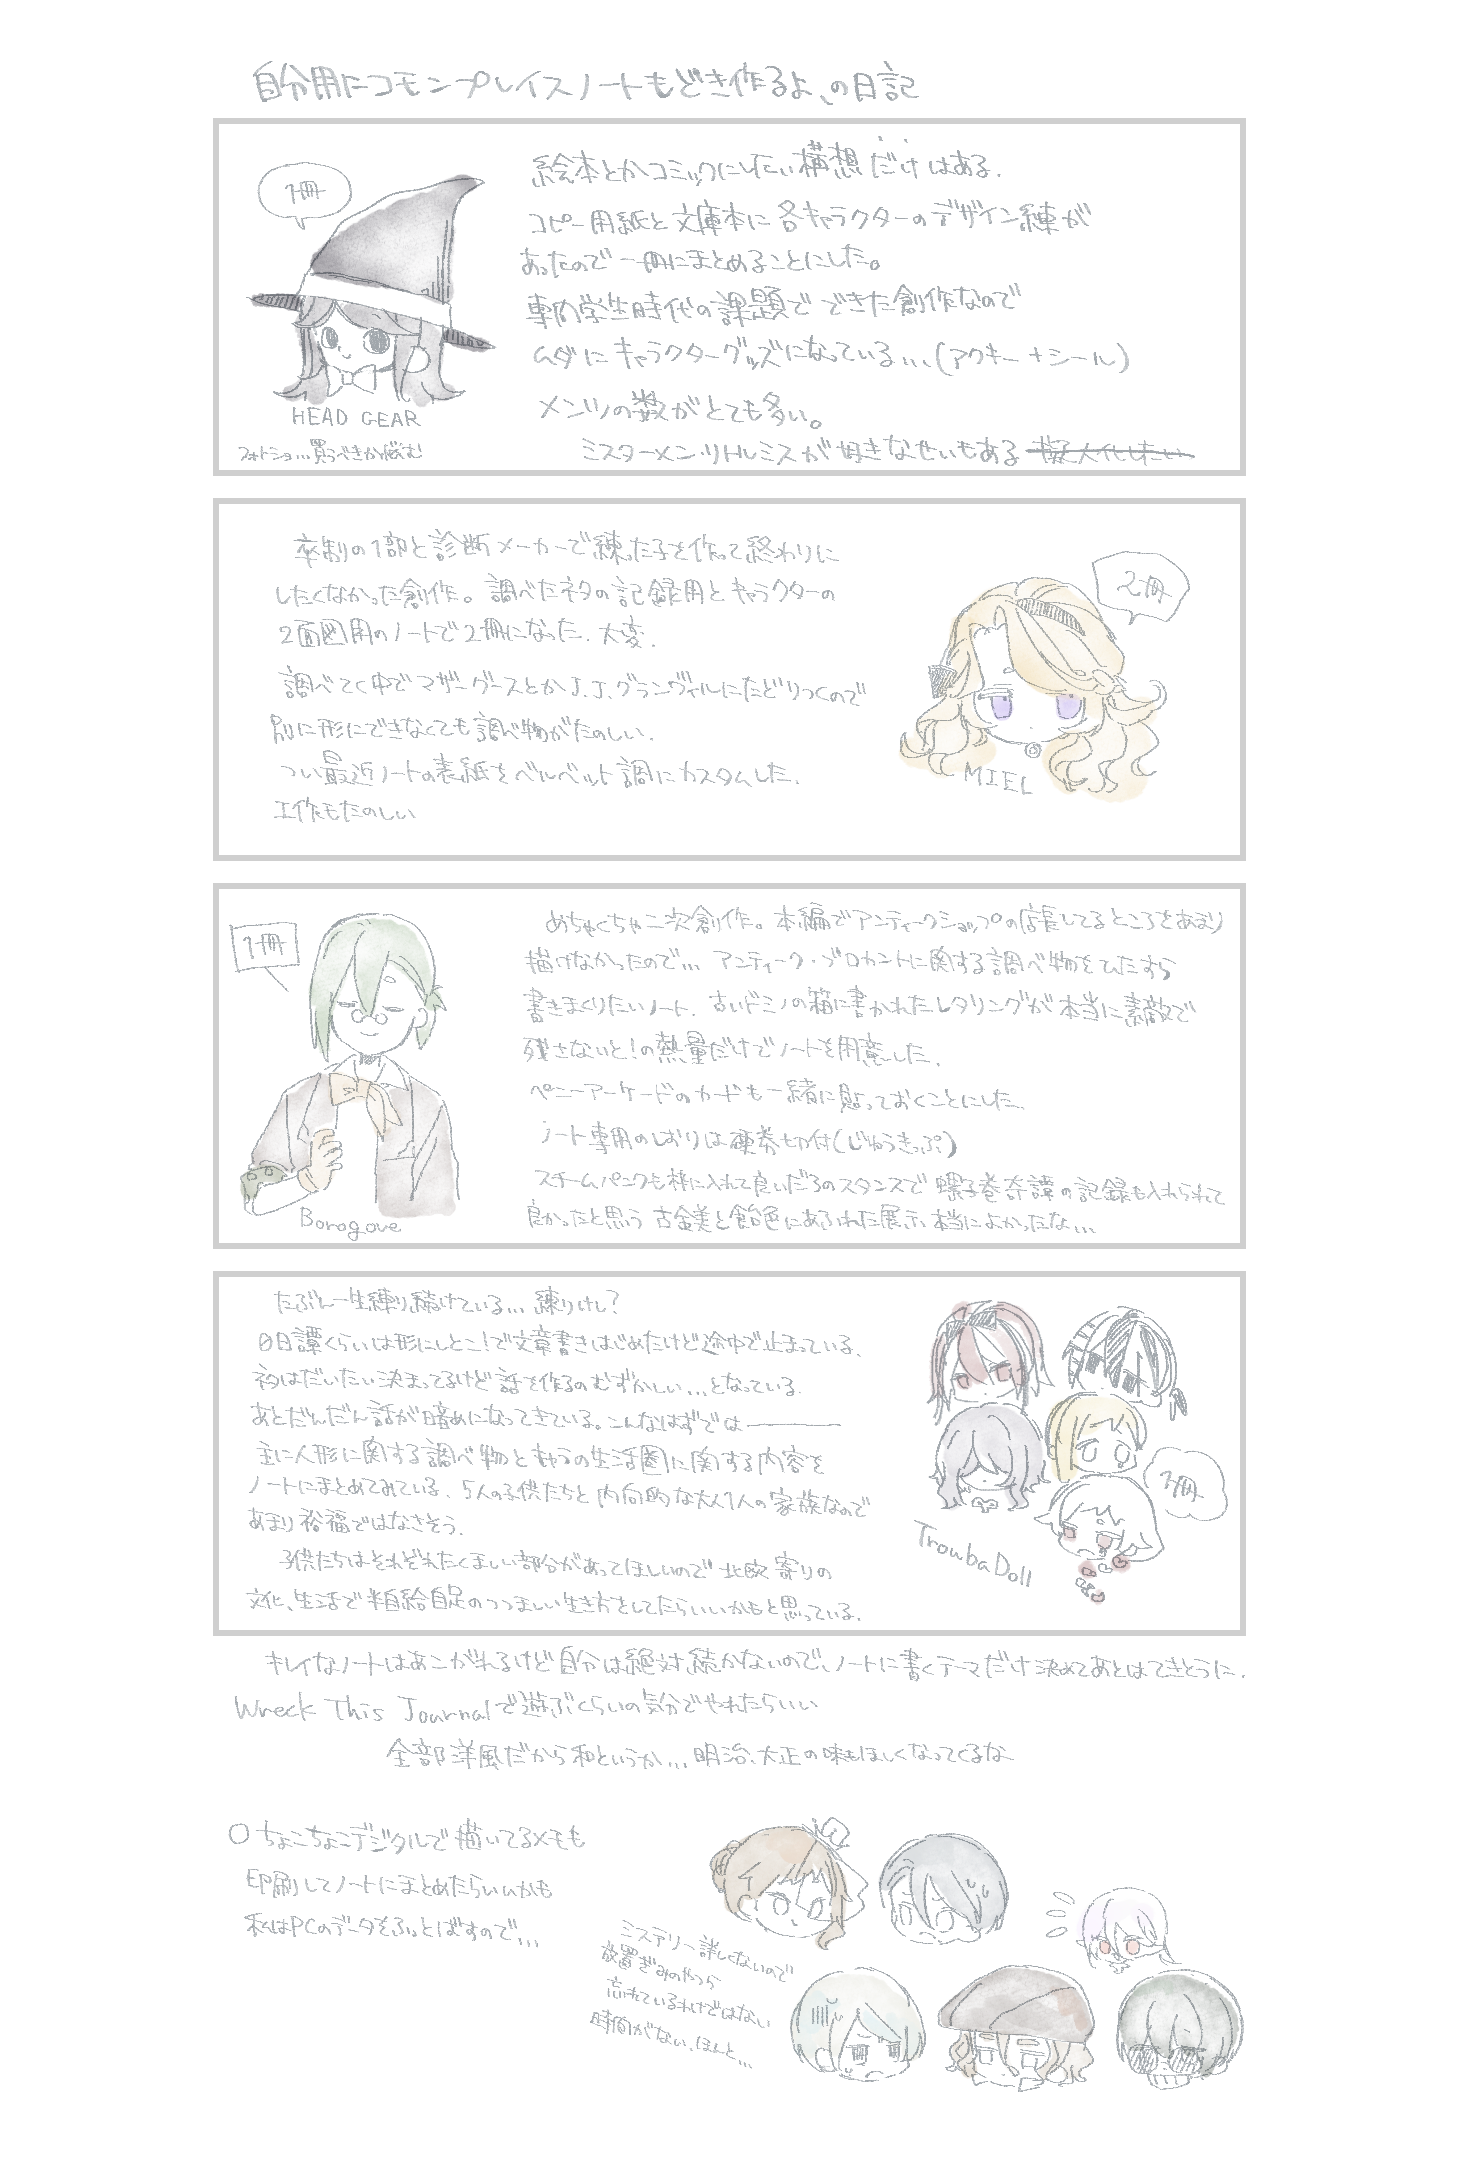 自分用にコモンプレイスノートもどき作るよ、の日記
1冊
絵本とかコミックにしたい構想だけはある.
コピー用紙と文庫本に各キャラクターのデザイン練が
あったので一冊にまとめることにした。
専門学生時代の課題でできた創作なので
ムダにキャラクターグッズになっている...(アクキー+シール)
メンツの数がとても多い。
ミスターメン・リトルミスが好きなせいもある 擬人化したい
HEAD GEAR
フォトショ...買うべきか悩む
卒制の1部と診断メーカーで練った子を作って終わりに
したくなかった創作。調べたネタの記録用とキャラクターの
2面図用のノートで2冊になった.大変.
調べてく中でマザーグースとかJ.J.グランヴィルにたどりつくので
別に形にできなくても調べ物がたのしい.
つい最近ノートの表紙をベルベット調にカスタムした.
工作もたのしい
2冊
MIEL
1冊
めちゃくちゃ二次創作。本編でアンティークショップの店長してるところをあまり
描けなかったので... アンティーク・ブロカントに関する調べ物をひたすら
書きまくりたいノート. 古いドミノの箱に書かれたレタリングが本当に素敵で
残さないと!の熱量だけでノートを用意した.
ペニーアーケードのカードも一緒に貼っておくことにした.
ノート専用のしおりは硬券切付(じゅうきっぷ)
スチームパンクも枠に入れて良いだろのスタンスで 螺子巻奇譚の記録も入れられて
良かったと思う 古金美と飴色にあふれた展示、本当によかったな...
Borogove
たぶん一生練り続けている... 練りけし?
0日譚くらいは形にしとこ!で文章書きはじめたけど途中で止まっている.
初はだいたい決まってるけど話を作るのむずかしい...となっている.
あとだんだん話が暗めになってきている。こんなはずでは────
主に人形に関する調べ物とキャラの生活圏に関する内容を
ノートにまとめてみている. 5人の子供たちと内向的な大人1人の家族なので
あまり裕福ではなさそう.
子供たちはそれぞれたくましい部分があってほしいので北欧寄りの
文化、生活で半自給自足のつつましい生き方をしてたらいいかもと思っている.
3冊
TroubaDoll
キレイなノートはあこがれるけど自分は絶対続かないので、ノートに書くテーマだけ決めてあとはてきとうに.
Wreck This Journalで遊ぶくらいの気分でやれたらいい
全部洋風だから和というか... 明治、大正の味もほしくなってくるな
○ちょこちょこデジタルで描いてるメモも
印刷してノートにまとめたらいいかも
私はPCのデータをふっとばすので...
ミステリー詳しくないので
放置ぎみのやつら
忘れているわけではない
時間がない.ほんと...